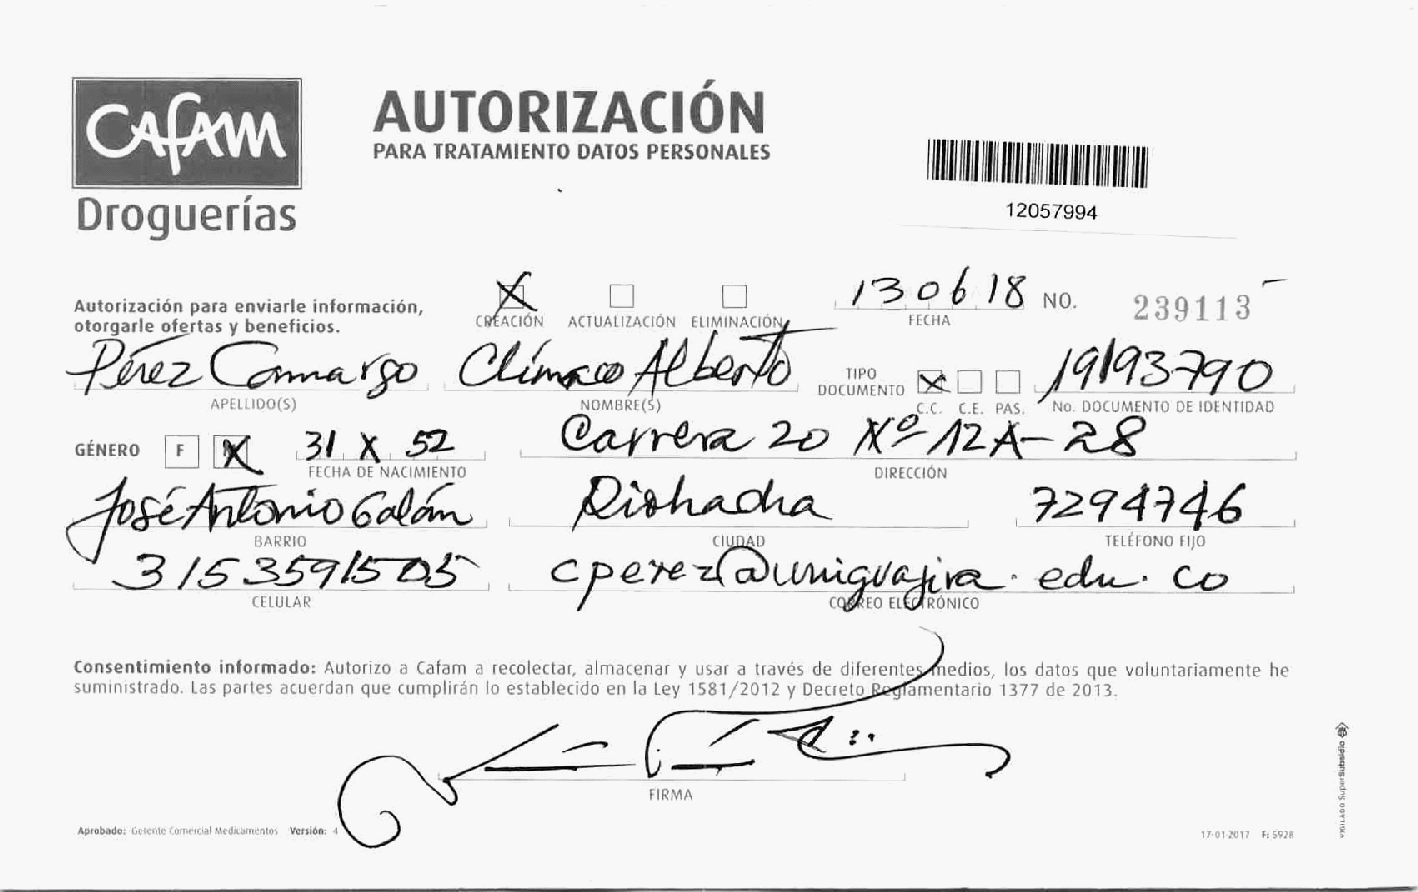 CAFAM
Droguerías
AUTORIZACIÓN
PARA TRATAMIENTO DATOS PERSONALES
12057994
Autorización para enviarle información,
otorgarle ofertas y beneficios.
CREACIÓN ACTUALIZACIÓN ELIMINACIÓN
13 06 18
FECHA
NO. 239113
Pérez Camargo Clímaco Alberto
APELLIDO(S) NOMBRE(S)
TIPO
DOCUMENTO
C.C. C.E. PAS.
19193790
No. DOCUMENTO DE IDENTIDAD
GÉNERO F M 31 X 52 Carrera 20 Nº 12A-28
FECHA DE NACIMIENTO DIRECCIÓN
José Antonio Galán Riohacha 7294746
BARRIO CIUDAD TELÉFONO FIJO
3153591505 cperez@uniguajira.edu.co
CELULAR CORREO ELECTRÓNICO
Consentimiento informado: Autorizo a Cafam a recolectar, almacenar y usar a través de diferentes medios, los datos que voluntariamente he
suministrado. Las partes acuerdan que cumplirán lo establecido en la Ley 1581/2012 y Decreto Reglamentario 1377 de 2013.
FIRMA
Aprobado: Gerente Comercial Medicamentos Versión: 4
17-01-2017 F: 5928
VIGILADO SuperSubsidio